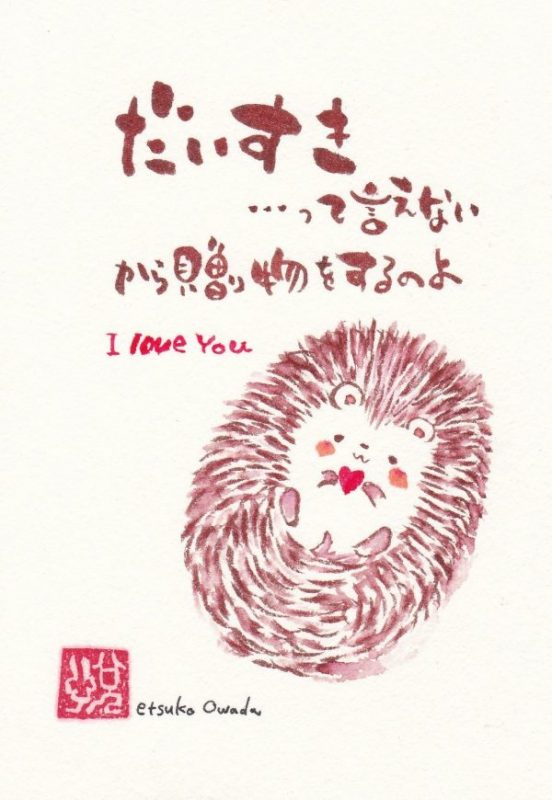 だいすき
…って言えない
から贈り物をするのよ
I love You
etsuko Owada